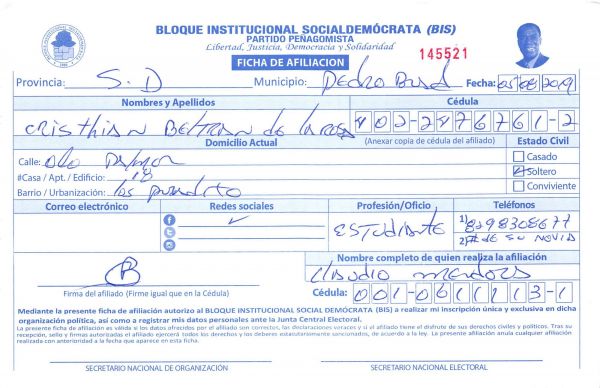 BLOQUE INSTITUCIONAL SOCIALDEMÓCRATA (BIS)
PARTIDO PEÑAGOMISTA
Libertad, Justicia, Democracia y Solidaridad
FICHA DE AFILIACION
145521
Provincia: S.D Municipio: Pedro Brand Fecha: 05/08/2019
Nombres y Apellidos Cédula
CRISTHIAN BELTRAN de la rosa 402-2876761-2
Domicilio Actual (Anexar copia de cédula del afiliado) Estado Civil
Calle: Casado
#Casa / Apt. / Edificio: 18 Soltero
Barrio / Urbanización: los Conviviente
Correo electrónico Redes sociales Profesión/Oficio Teléfonos
ESTUDIANTE 1) 8298308677
2) # DE SU NOVIA
Nombre completo de quien realiza la afiliación
claudio mendoza
Firma del afiliado (Firme igual que en la Cédula) Cédula: 001-0611113-1
Mediante la presente ficha de afiliación autorizo al BLOQUE INSTITUCIONAL SOCIAL DEMÓCRATA (BIS) a realizar mi inscripción única y exclusiva en dicha
organización política, así como a registrar mis datos personales ante la Junta Central Electoral.
La presente ficha de afiliación es válida si los datos ofrecidos por el afiliado son correctos, las declaraciones veraces y si el afiliado tiene el disfrute de sus derechos civiles y políticos. Tras su
recepción, sello y firmas autorizadas el afiliado ejercerá todos los derechos y los deberes estatutariamente sancionados, de acuerdo a la ley. La presente afiliación anula cualquier afiliación
realizada con anterioridad a la fecha que aparece en esta ficha.
SECRETARIO NACIONAL DE ORGANIZACIÓN SECRETARIO NACIONAL ELECTORAL